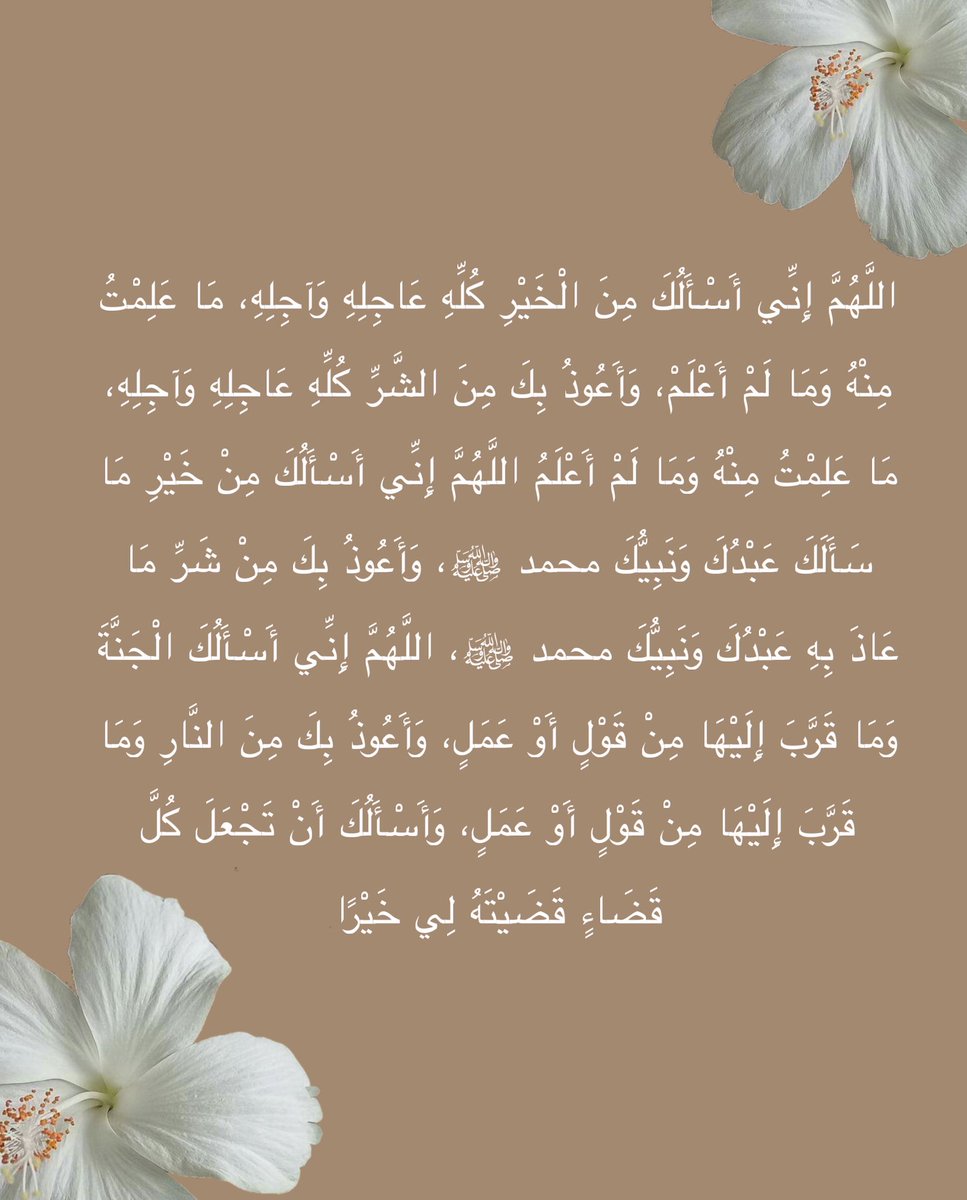 اللَّهُمَّ إِنِّي أَسْأَلُكَ مِنَ الْخَيْرِ كُلِّهِ عَاجِلِهِ وَآجِلِهِ، مَا عَلِمْتُ
مِنْهُ وَمَا لَمْ أَعْلَمْ، وَأَعُوذُ بِكَ مِنَ الشَّرِّ كُلِّهِ عَاجِلِهِ وَآجِلِهِ،
مَا عَلِمْتُ مِنْهُ وَمَا لَمْ أَعْلَمُ اللَّهُمَّ إِنِّي أَسْأَلُكَ مِنْ خَيْرِ مَا
سَأَلَكَ عَبْدُكَ وَنَبِيُّكَ محمد ﷺ، وَأَعُوذُ بِكَ مِنْ شَرِّ مَا
عَاذَ بِهِ عَبْدُكَ وَنَبِيُّكَ محمد ﷺ، اللَّهُمَّ إِنِّي أَسْأَلُكَ الْجَنَّةَ
وَمَا قَرَّبَ إِلَيْهَا مِنْ قَوْلٍ أَوْ عَمَلٍ، وَأَعُوذُ بِكَ مِنَ النَّارِ وَمَا
قَرَّبَ إِلَيْهَا مِنْ قَوْلٍ أَوْ عَمَلٍ، وَأَسْأَلُكَ أَنْ تَجْعَلَ كُلَّ
قَضَاءٍ قَضَيْتَهُ لِي خَيْرًا